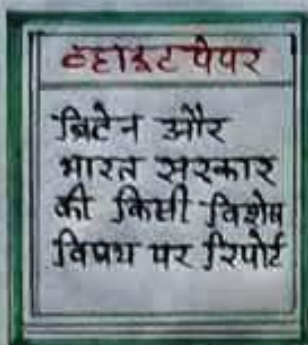 व्हाइट पेपर
ब्रिटेन और
भारत सरकार
की किसी विशेष
विषय पर रिपोर्ट